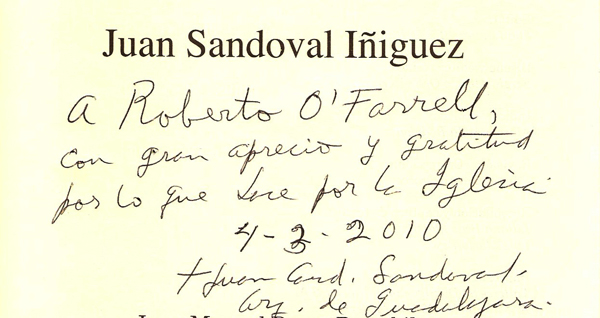 Juan Sandoval Iñiguez
A Roberto O'Farrell,
con gran aprecio y gratitud
por lo que hace por la Iglesia
4-3-2010
+Juan Card. Sandoval.
Arz. de Guadalajara.